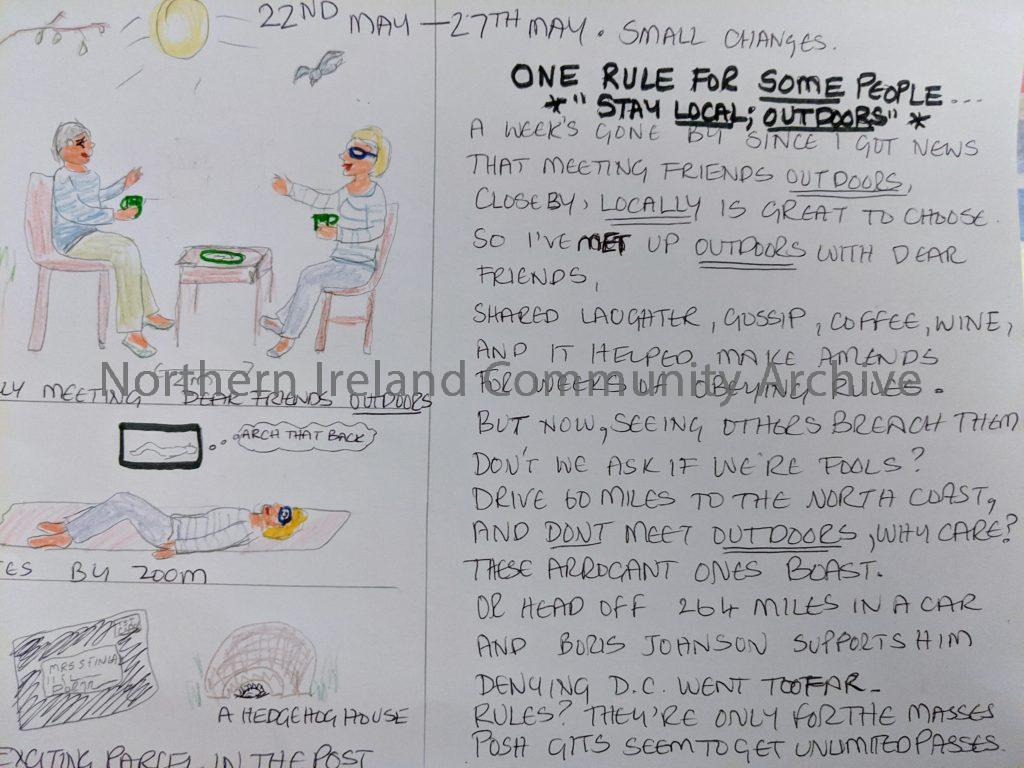 22ND MAY – 27TH MAY. SMALL CHANGES.
ONE RULE FOR SOME PEOPLE...
* "STAY LOCAL; OUTDOORS" *
A WEEK'S GONE BY SINCE I GOT NEWS
THAT MEETING FRIENDS OUTDOORS,
CLOSEBY, LOCALLY IS GREAT TO CHOOSE.
SO I'VE MET UP OUTDOORS WITH DEAR
FRIENDS,
SHARED LAUGHTER, GOSSIP, COFFEE, WINE,
AND IT HELPED MAKE AMENDS
FOR WEEKS OF OBEYING RULES.
BUT NOW, SEEING OTHERS BREACH THEM
DON'T WE ASK IF WE'RE FOOLS?
DRIVE 60 MILES TO THE NORTH COAST,
AND DONT MEET OUTDOORS, WHY CARE?
THESE ARROGANT ONES BOAST.
OR HEAD OFF 264 MILES IN A CAR
AND BORIS JOHNSON SUPPORTS HIM
DENYING D.C. WENT TOO FAR–
RULES? THEY'RE ONLY FOR THE MASSES
POSH GITS SEEM TO GET UNLIMITED PASSES.
MEETING DEAR FRIENDS OUTDOORS
ARCH THAT BACK
BY ZOOM
MRS S FINLA
A HEDGEHOG HOUSE
EXCITING PARCEL IN THE POST
Northern Ireland Community Archive